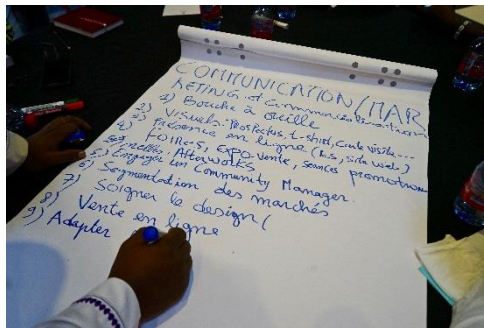 COMMUNICATION/MAR
KETING et Communication
1) Bouche à oreille
2) Visuels: Prospectus, t-shirt, carte visite...
3) Présence en ligne (R.S, site web)
4) FOIRES, expo-vente, services promotionnels, Afterworks
5) Engager un Community Manager.
6) Segmentation des marchés
7) Soigner le design (
8) Vente en ligne
9) Adapter